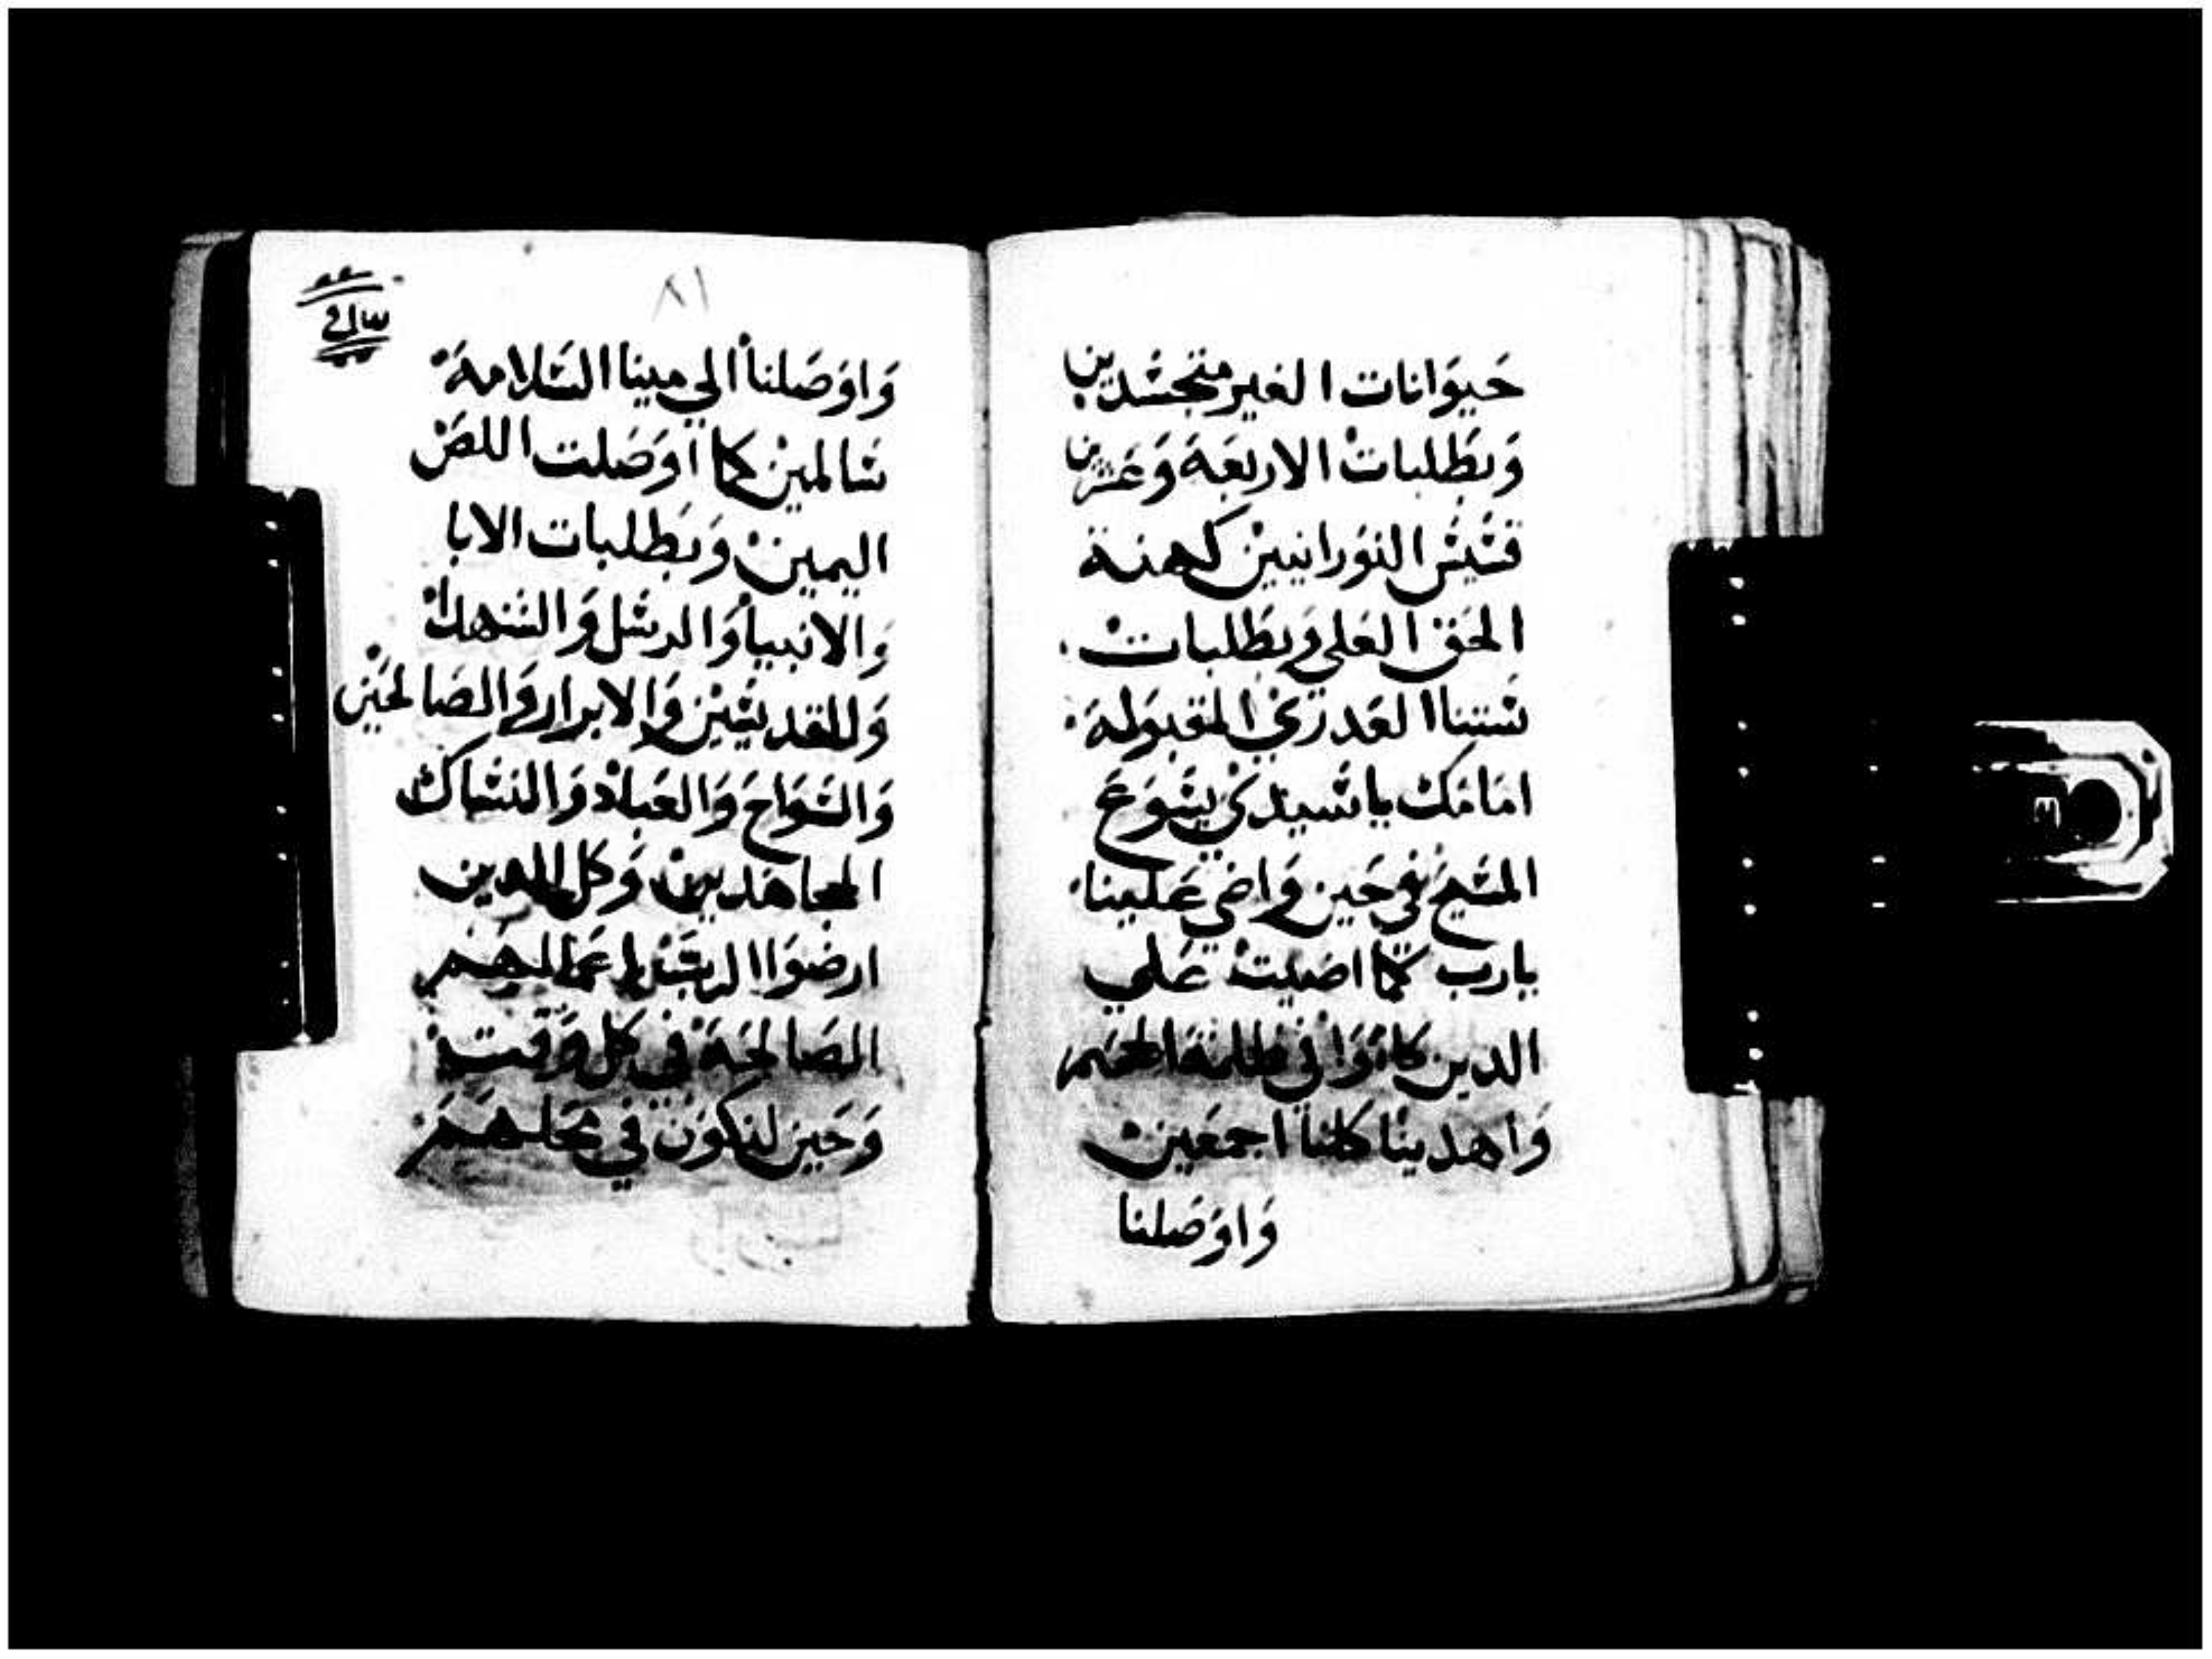 حيوانات الغير متجسدين
وبطلبات الاربعة وعشرين
قسيس النورانيين كهنة
الحق العلي وبطلبات
ستنا العدري المقبوله
امامك يا سيدي يسوع
المسيح في حين واضي علينا
يارب كما اضيت علي
الدين كانوا في ظلمة الجحيم
واهدينا كلنا اجمعين
واوصلنا
٨١
واوصلنا الي مينا السلامة
سالمين كما اوصلت اللص
اليمين وبطلبات الابا
والانبيا والرسل والشهدا
والقديسين والابرار والصالحين
والسواح والعباد والنساك
المجاهدين وكل الدين
ارضوا الرب باعمالهم
الصالحة في كل وقت
وحين لنكون في محلهم